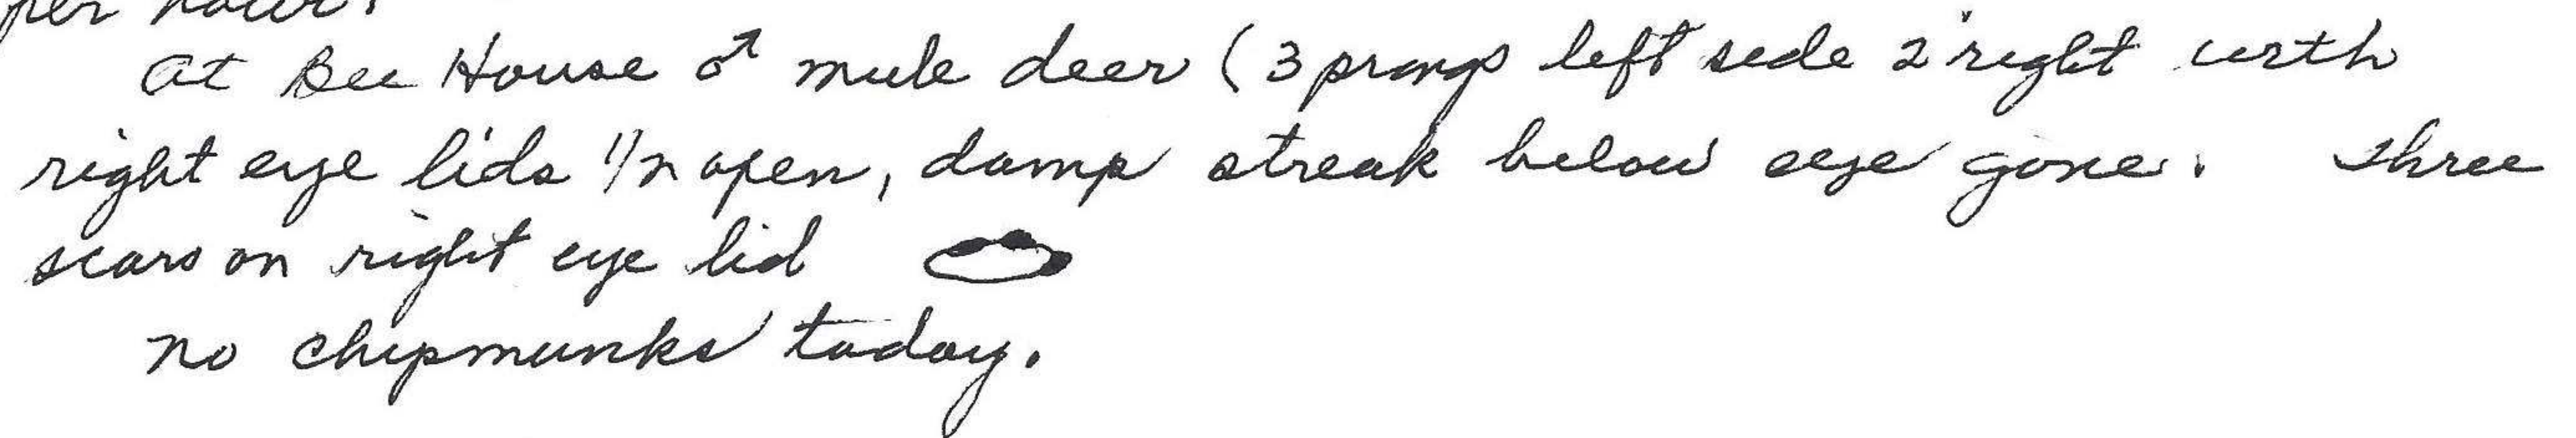 per hour.
At Bee House ♂ mule deer (3 prongs left side 2 right with
right eye lids 1/2 open, damp streak below eye gone. Three
scars on right eye lid
No chipmunks today.